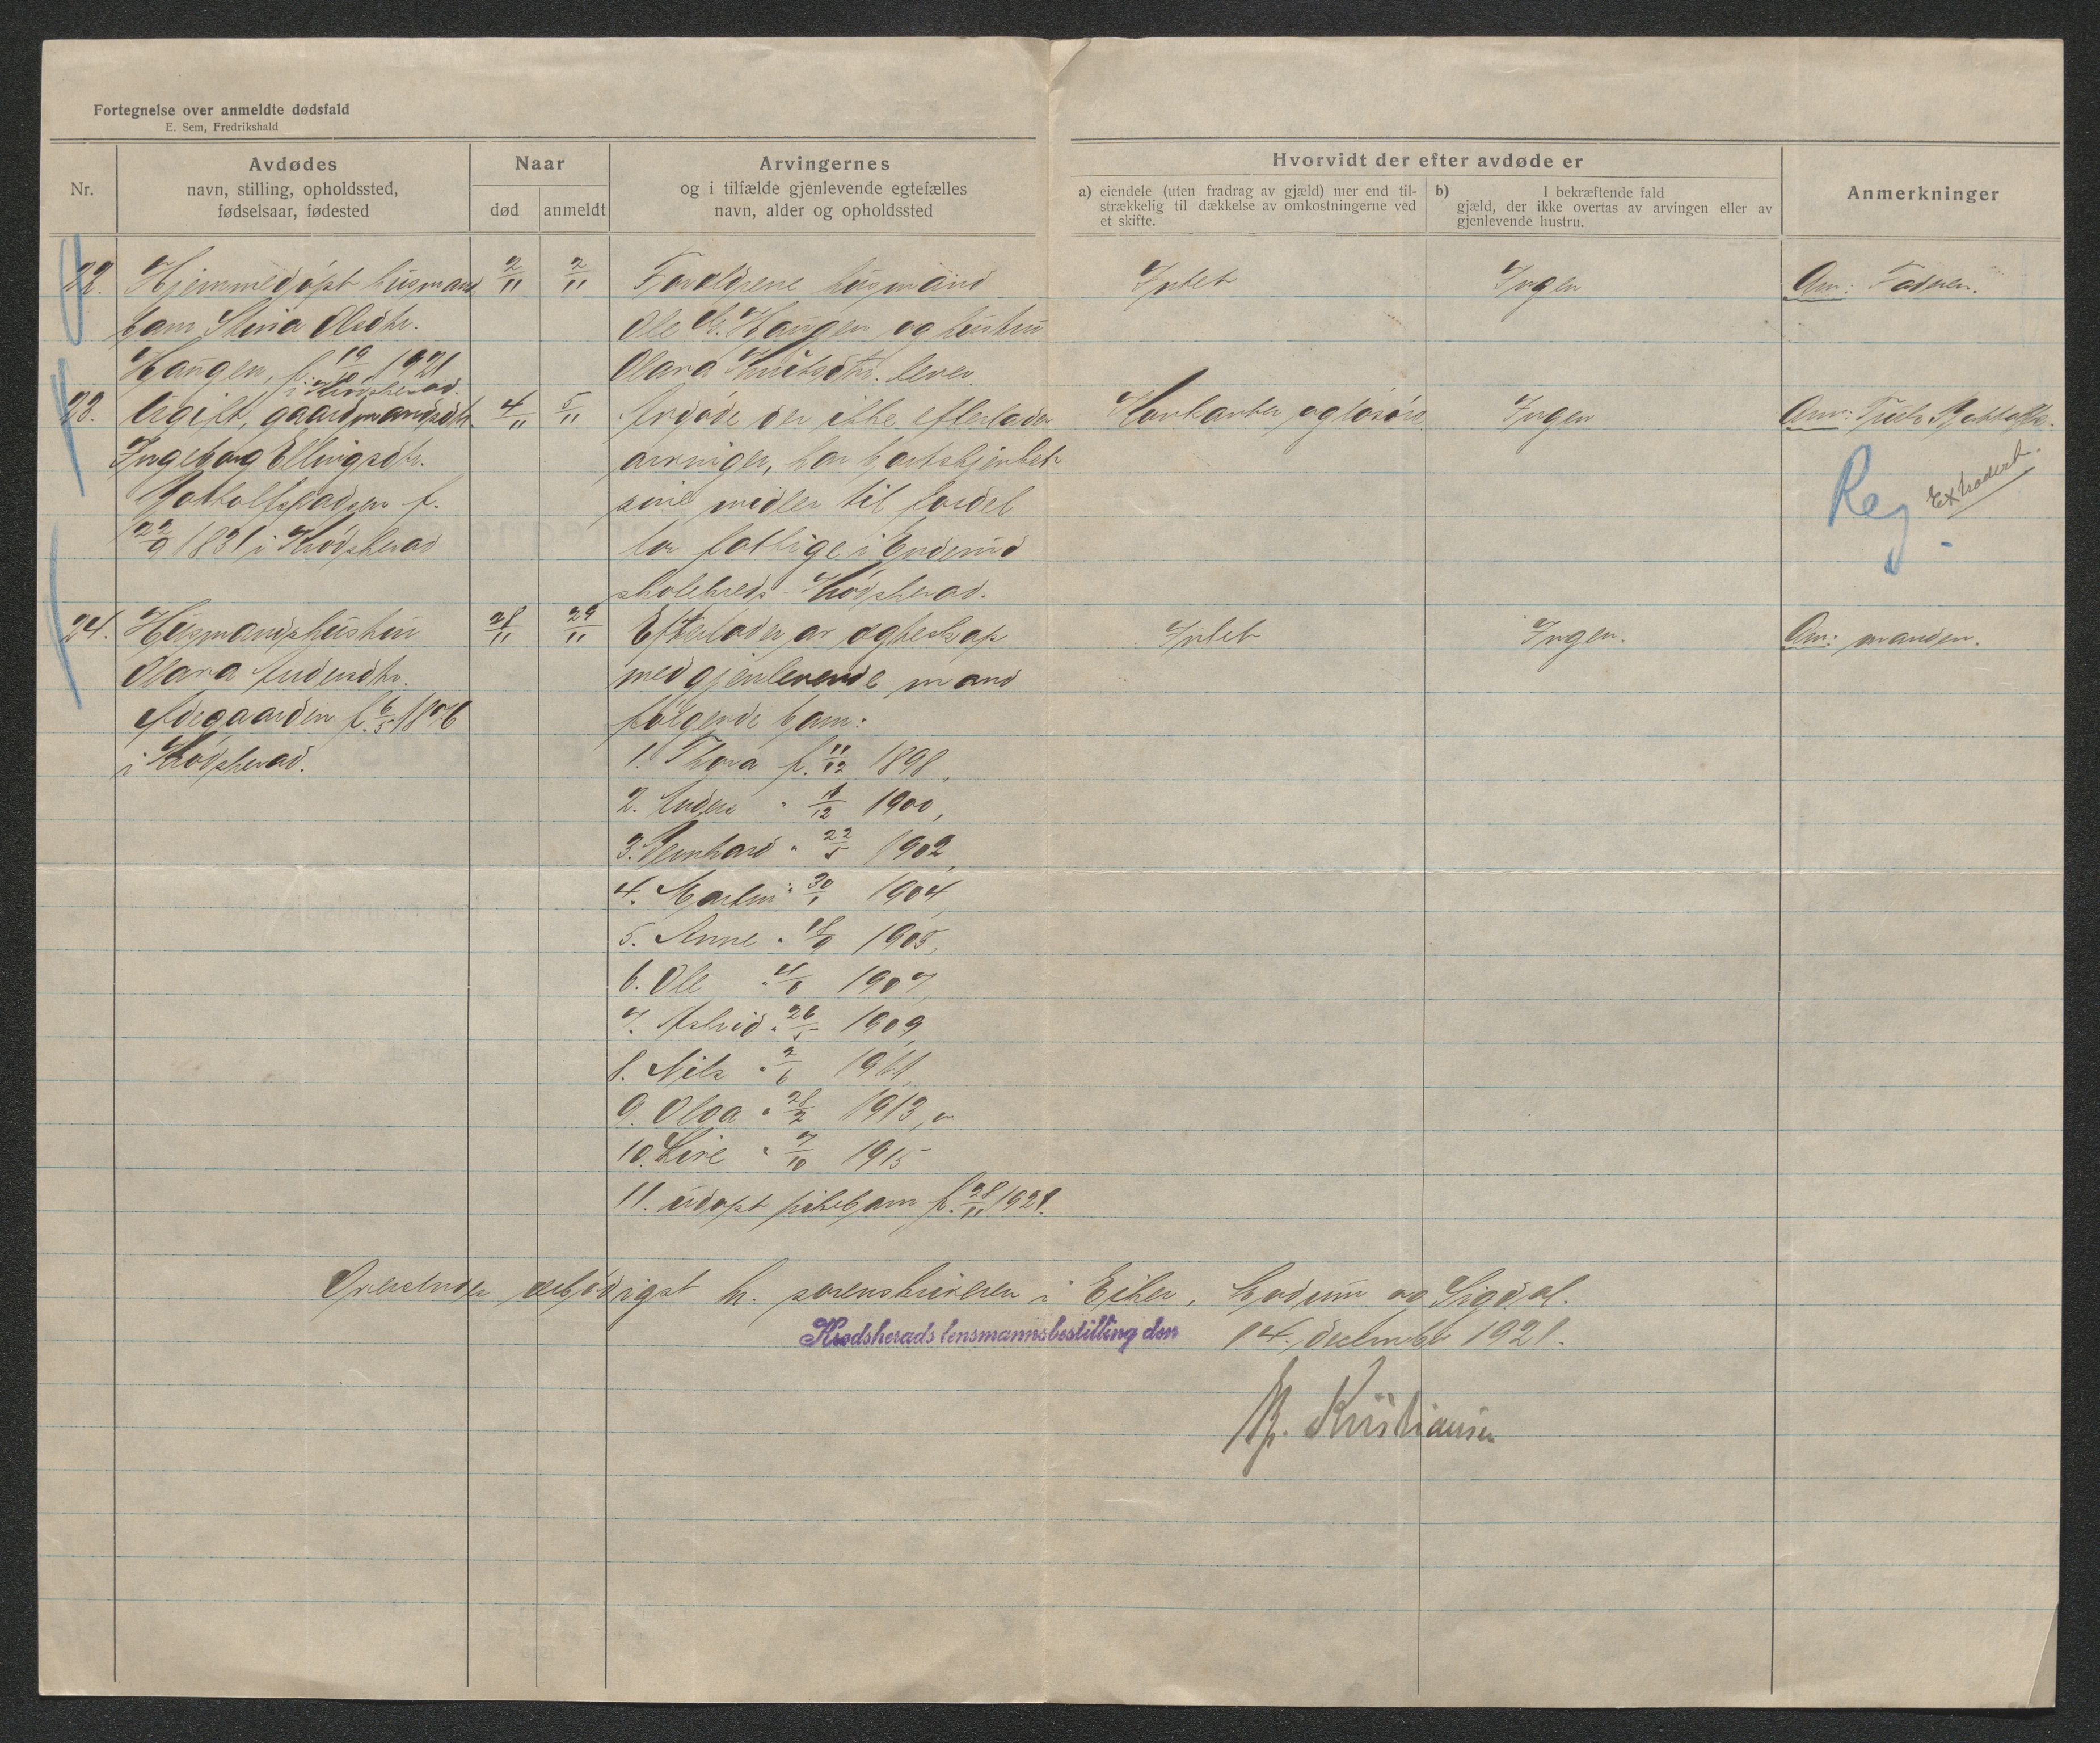 Fortegnelse over anmeldte dødsfald
E. Sem, Fredrikshald
Nr.
Avdødes
navn, stilling, opholdssted,
fødselsaar, fødested
Naar
død
anmeldt
Arvingernes
og i tilfælde gjenlevende egtefælles
navn, alder og opholdssted
Hvorvidt der efter avdøde er
a) eiendele (uten fradrag av gjæld) mer end til-
strækkelig til dækkelse av omkostningerne ved
et skifte.
b) I bekræftende fald
gjæld, der ikke overtas av arvingen eller av
gjenlevende hustru.
Anmerkninger
22.
Hjemmedøpt husmand
barn Olsdtr.
Haugen, f. 19/10 1921
i Krødsherad.
2/11
2/11
Forældrene husmand
Ole Haugen og hustru
Olava Knutsdtr. lever
Intet
Ingen
Anm: Faderen.
23.
Ugift, gaardmandsdtr.
Ingeborg Ellingsdtr.
f.
22/9 1831 i Krødsherad
4/11
5/11
Avdøde der ikke efterlader
arvinger, har bortskjenket
sine midler til fordel
for fattige i
skolekreds - Krødsherad.
og løsøre
Ingen
Anm:
Reg
Extradert.
24.
Husmandshustru
Olava Andersdtr.
Ødegaarden f. 6/5 1876
i Krødsherad.
28/11
29/11
Efterlader av egteskap
med gjenlevende mand
følgende barn:
1. Thora f. 11/12 1898,
2. Anders " 11/12 1900,
3. Bernhard " 22/5 1902,
4. Martin " 30/1 1904,
5. Anne " 18/9 1905,
6. Ole " 1907,
7. Astrid " 26/5 1909,
8. Nils " 2/6 1911,
9. Olga " 28/2 1913,
10. Live " 7/10 1915
11. udøpt pikebarn f. 28/11 1921.
Intet
Ingen.
Anm: manden.
Oversendes ærbødigst hr. sorenskriveren i Eiker, Modum og Sigdal.
Krødsherads lensmannsbestilling den 14. december 1921.
Kristiansen